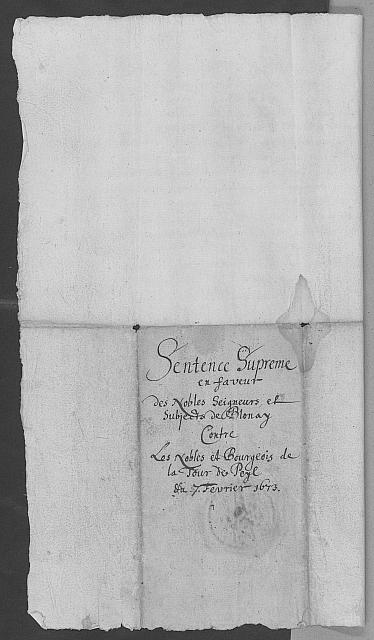 Sentence Supreme
en faveur
des Nobles Seigneurs et
Subjects de Blonay
Contre
Les Nobles et Bourgeois de
la Tour de Peyl
du 7. Fevrier 1673.